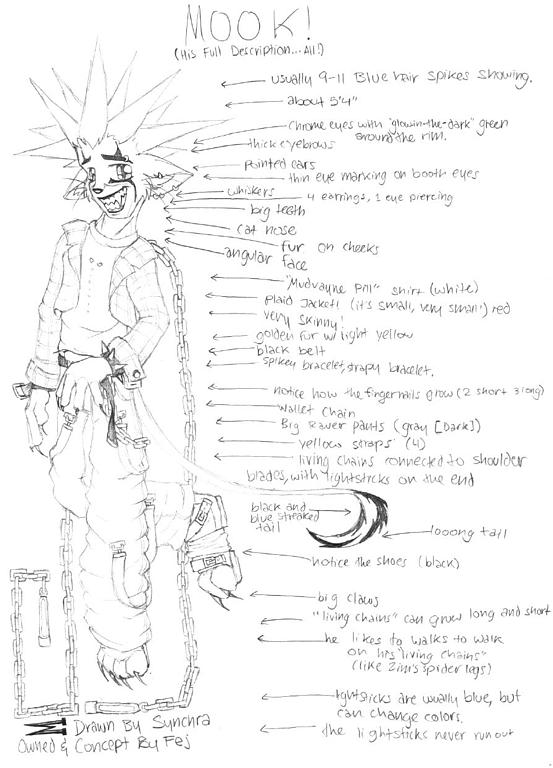 MOOK!
(His Full Description...All!)
usually 9-11 Blue hair spikes showing.
about 5'4"
chrome eyes with "glow-in-the-dark" green
around the rim.
thick eyebrows
pointed ears
thin eye marking on booth eyes
whiskers
4 earrings, 1 eye piercing
big teeth
cat nose
fur on cheeks
angular face
"Mudvayne Pill" shirt (white)
plaid Jacket! (it's small, very small!) red
very skinny!
golden fur w/ light yellow
black belt
spikey bracelet, strapy bracelet.
notice how the fingernails grow (2 short 3 long)
wallet chain
Big Raver pants (gray [Dark])
yellow straps (4)
living chains connected to shoulder
blades, with lightsticks on the end
black and
blue streaked
tail
looong tail
notice the shoes (black)
big claws
"living chains" can grow long and short
he likes to walks to walk
on his "living chains"
(like Zim's spider legs)
lightsticks are usually blue, but
can change colors.
the lightsticks never run out
Drawn By Synchra
Owned & Concept By Fej